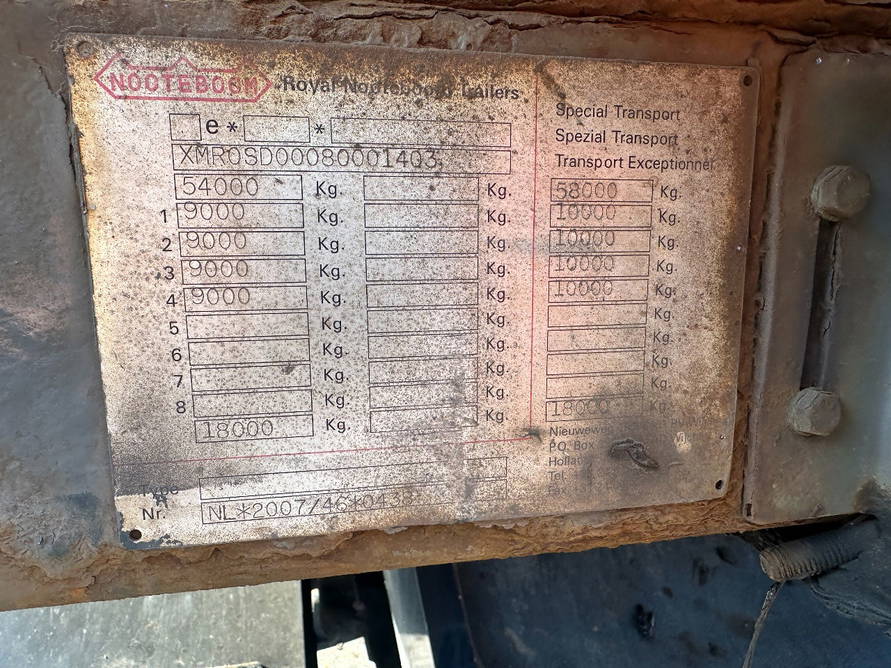 NOOTEBOOM Royal Nooteboom Trailers
e* *
XMR0SD00080001403
54000 Kg. Kg.
1 9000 Kg. Kg.
2 9000 Kg. Kg.
3 9000 Kg. Kg.
4 9000 Kg. Kg.
5 Kg. Kg.
6 Kg. Kg.
7 Kg. Kg.
8 Kg. Kg.
18000 Kg. Kg.
Type
Nr. NL*2007/46*043
Special Transport
Spezial Transport
Transport Exceptionnel
58000 Kg.
10000 Kg.
10000 Kg.
10000 Kg.
10000 Kg.
Kg.
Kg.
Kg.
Kg.
18000
P.O. Box
Tel.